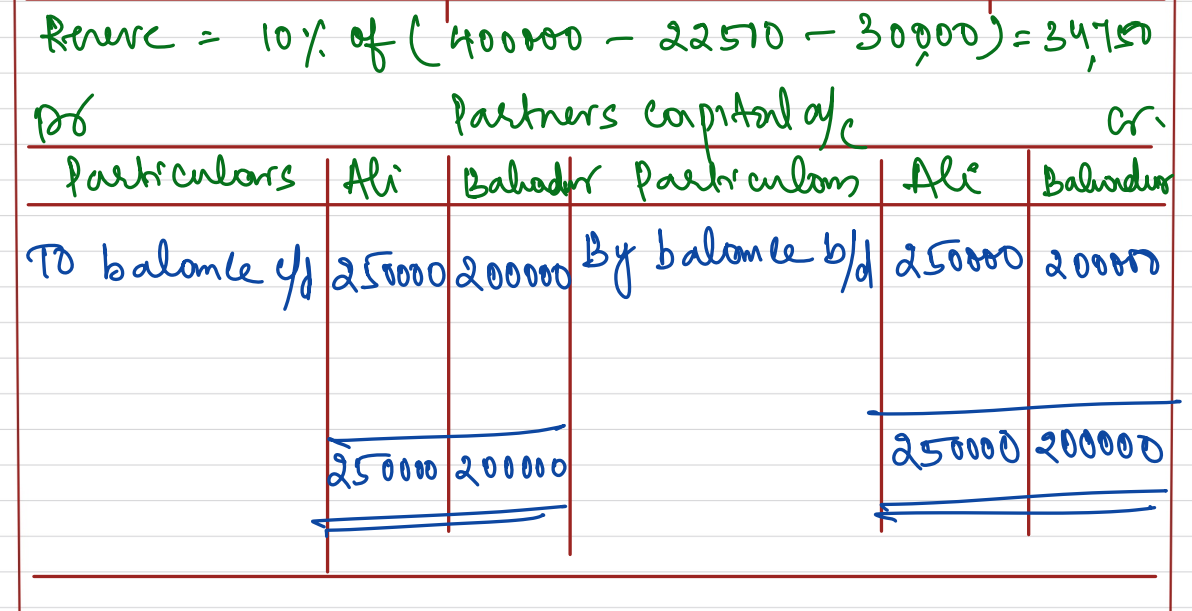 Reserve = 10% of (400000 - 22510 - 30,000) = 34,750
Dr Partners capital a/c Cr.
Particulars Ali Bahadur Particulars Ali Bahadur
To balance c/d 250000 200000 By balance b/d 250000 200000
250000 200000 250000 200000